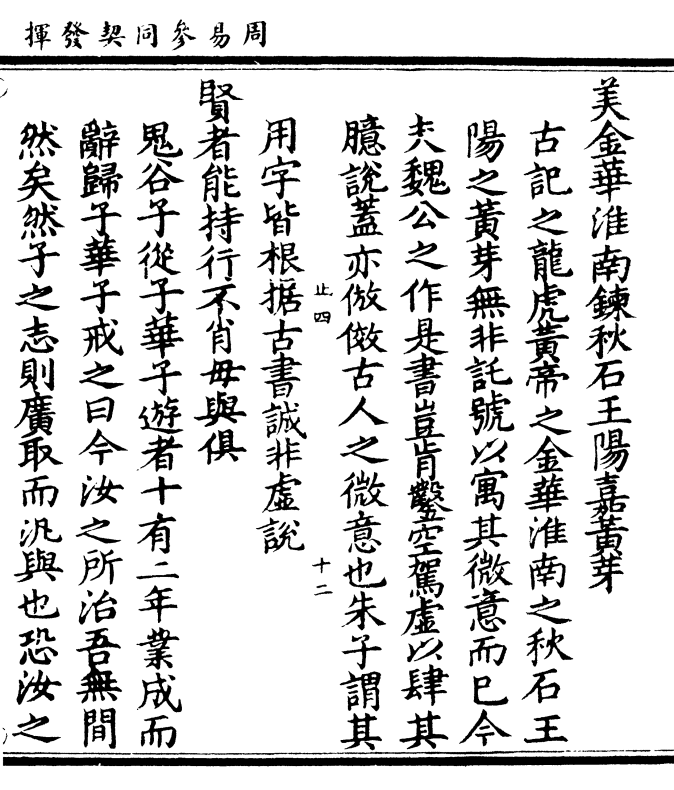 周易參同契發揮
美金華淮南鍊秋石王陽嘉黃芽
古記之龍虎黃帝之金華淮南之秋石王
陽之黃芽無非託號以寓其微意而已今
夫魏公之作是書豈肯鑿空駕虛以肆其
臆說蓋亦倣傚古人之微意也朱子謂其
止四
十二
用字皆根据古書誠非虛說
賢者能持行不肖毋與俱
鬼谷子從子華子遊者十有二年業成而
辭歸子華子戒之曰今汝之所治吾無間
然矣然子之志則廣取而汎與也恐汝之